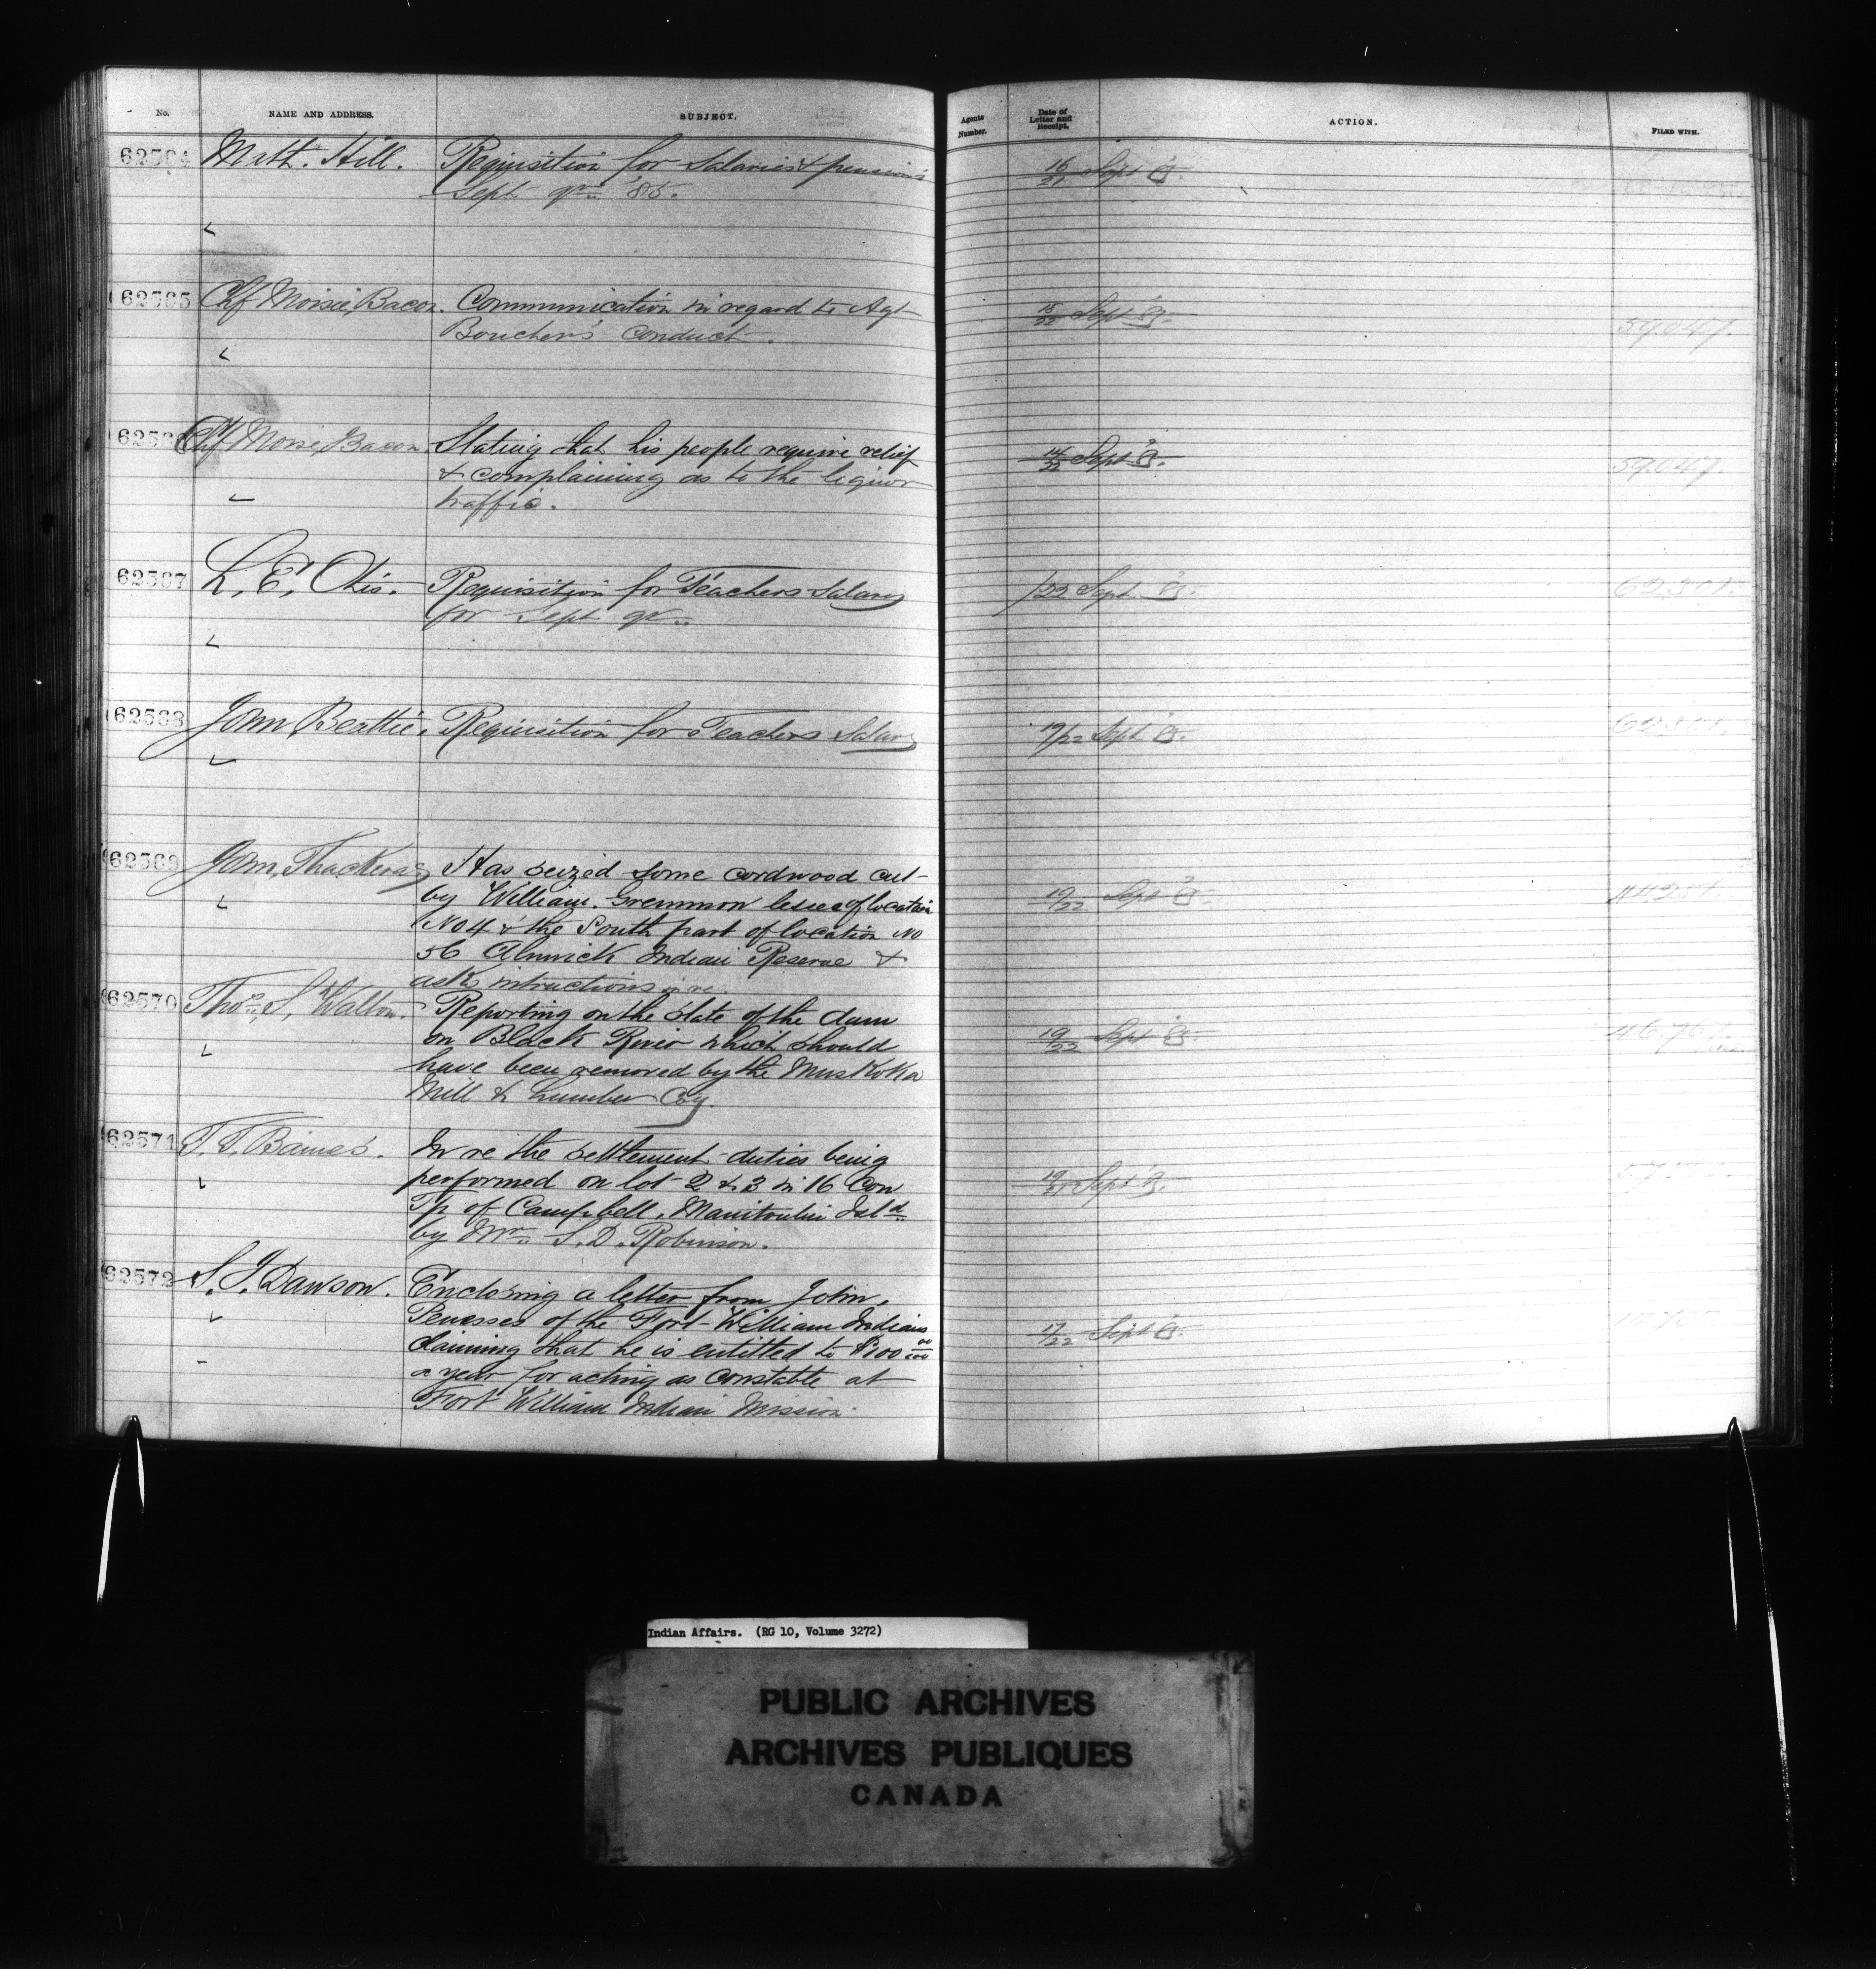 No.
NAME AND ADDRESS.
SUBJECT.
Agents Number.
Date of Letter and Receipt.
ACTION.
FILED WITH.
62564 Matt. Hill. Requisition for Salaries & pensions 16/21 Sept '85.
Sept qr. '85.
62565 Chf Moisie Bacon. Communication in regard to Agt 15/22 Sept '85.
Boucher's conduct. 59.047.
62566 Chf Moise Bacon. Stating that his people require relief 14/22 Sept '85.
& complaining as to the liquor 59.047.
traffic.
62567 L. E. Otis. Requisition for Teachers Salary /22 Sept '85.
for Sept qr.
62568 John Beattie. Requisition for Teachers Salary 19/22 Sept '85.
62569 John Thackeray Has seized some cordwood cut
by William Gremmon lessee of location 19/22 Sept '85.
No 4 & the South part of location No
56 Alnwick Indian Reserve &
ask intructions in re.
62570 Thos. S. Walton. Reporting on the state of the dam
on Black River which should 19/22 Sept '85.
have been removed by the Muskoka
Mill & Lumber Coy.
62571 T. T. Baines. In re the settlement duties being
performed on lot 2 & 3 in 16 Con 19/21 Sept '85.
Tp of Campbell, Manitoulin Isld
by Mr. S. D. Robinson.
62572 S. J. Dawson. Enclosing a letter from John
Penasses of the Fort William Indians 17/22 Sept '85.
claiming that he is entitled to $100 00/100
a year for acting as constable at
Fort William Indian Mission
Indian Affairs. (RG 10, Volume 3272)
PUBLIC ARCHIVES
ARCHIVES PUBLIQUES
CANADA